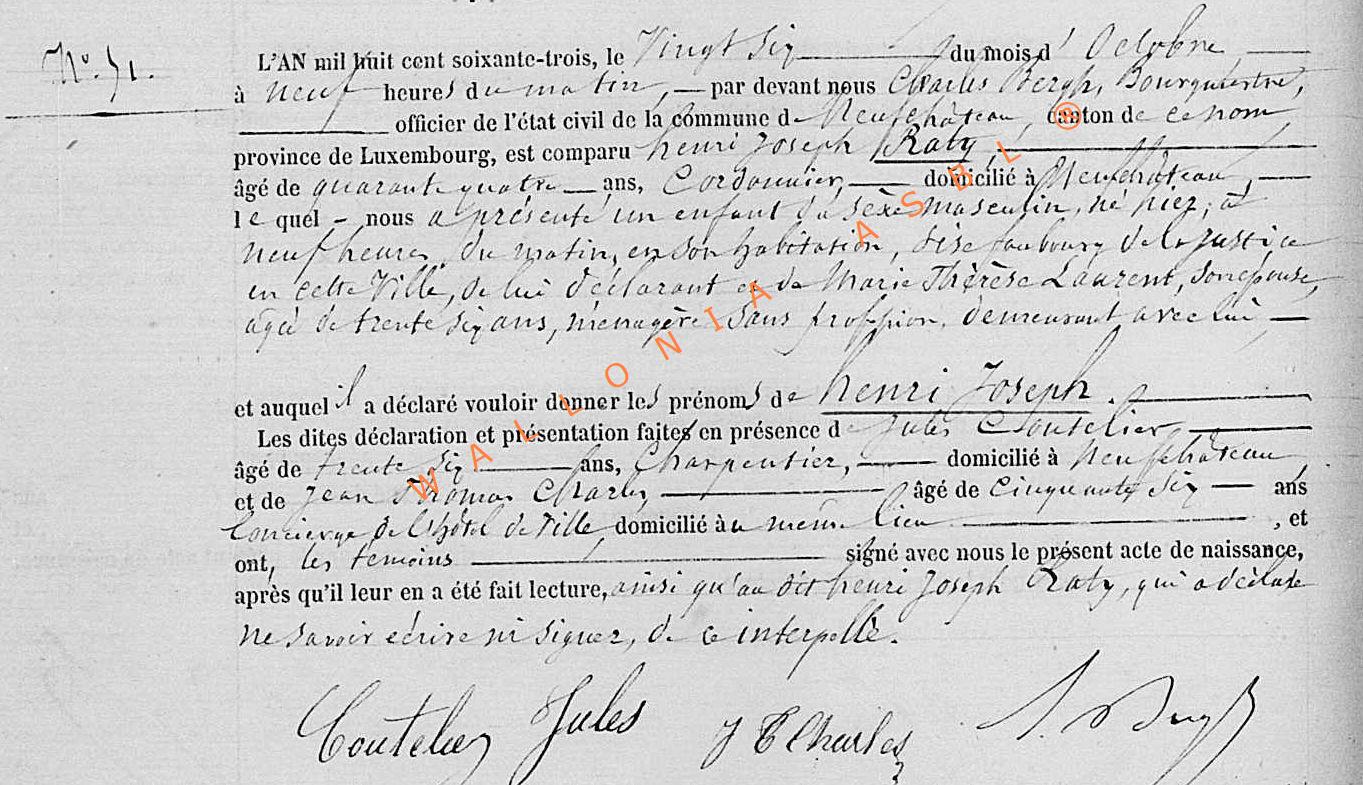 N.° 51.
L'AN mil huit cent soixante-trois, le Vingt six du mois d' Octobre
à neuf heures du matin, par devant nous Charles Bergh, Bourgmestre,
officier de l'état civil de la commune de Neufchâteau, canton de ce nom
province de Luxembourg, est comparu henri Joseph Raty
âgé de quarante quatre ans, Cordonnier, domicilié à Neufchâteau,
lequel nous a présenté un enfant du sexe masculin, né hier, à
neuf heures du matin, en son habitation, sise faubourg de la justice
en cette Ville, de lui déclarant et de Marie Thérèse Laurent, son épouse,
agée de trente six ans, ménagère sans profession, demeurant avec lui,
et auquel il a déclaré vouloir donner les prénoms de henri Joseph.
Les dites déclaration et présentation faites en présence de Jules Coutelier,
âgé de trente six ans, Charpentier, domicilié à Neufchâteau
et de Jean Thomas Charles, âgé de Cinquante six ans
Concierge de l'hôtel de Ville, domicilié au meme lieu, et
ont, les temoins signé avec nous le présent acte de naissance,
après qu'il leur en a été fait lecture, ainsi qu'au dit henri Joseph Raty, qui a déclaré
ne savoir écrire ni signer, de ce interpellé.
Coutelier Jules J T Charles
WALLONIA ASBL ®